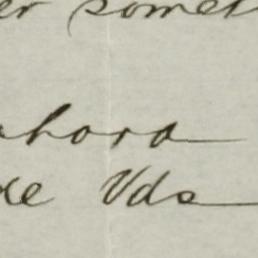 er somet
ahora
de Vds